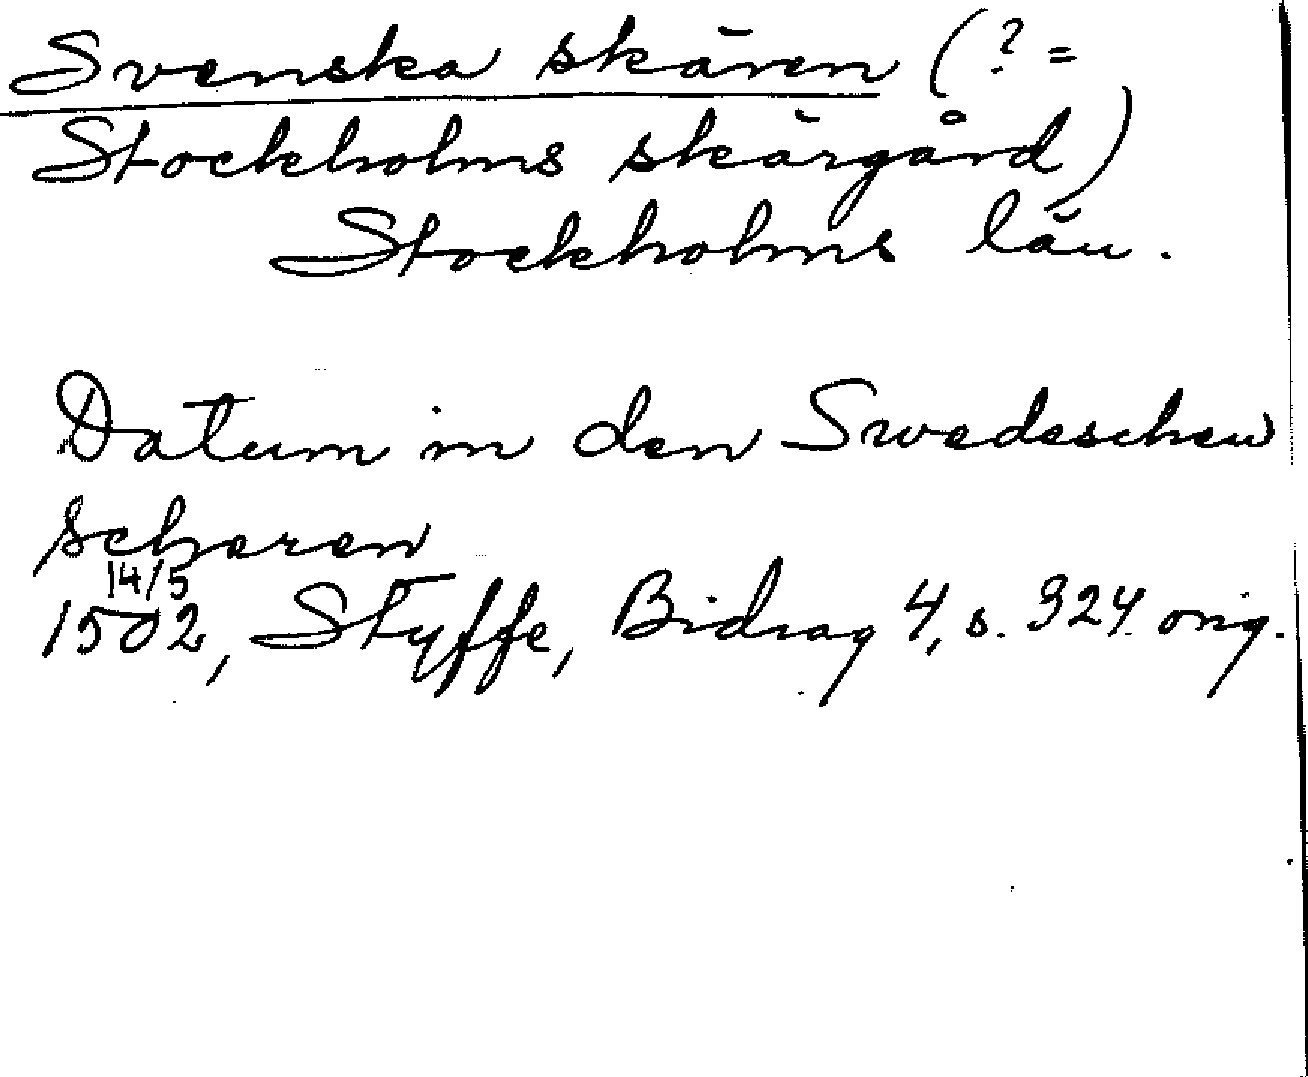 Svenska skären (? =
Stockholms skärgård)
Stockholms län.
Datum in den Swedeschen
scheren
14/5
1502, Styffe, Bidrag 4, s. 324. orig.